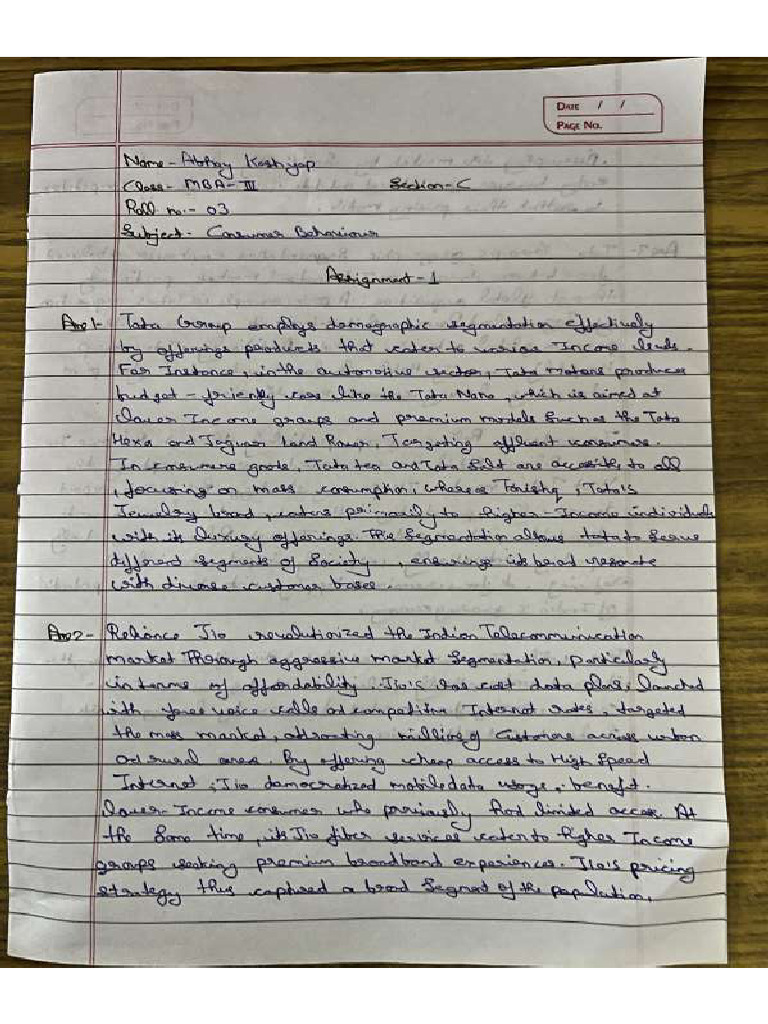 DATE / /
PAGE NO.
Name - Abhay Kashyap
Class - MBA - III Section - C
Roll no. - 03
Subject - Consumer Behaviour
Assignment - 1
Ans 1- Tata Group employs demographic segmentation effectively
by offerings products that cater to various Income levels.
For Instance, in the automotive sector, Tata motors produces
budget - friendly cars like the Tata Nano, which is aimed at
lower Income groups and premium models such as the Tata
Hexa and Jaguar Land Rover, Targeting affluent consumers.
In consumers goods, Tata tea and Tata Salt are accessible to all
, focusing on mass consumption, whereas Tanishq, Tata's
Jewelry brand, caters primarily to higher-Income individuals
with its luxury offerings. This Segmentation allows tata to Serve
different Segments of Society, ensuring its brand resonate
with diverse customer bases.
Ans 2- Reliance Jio revolutionized the Indian Telecommunication
market Through aggressive market Segmentation, particularly
in terms of affordability. Jio's low cost data plans, launched
with free voice calls at competitive Internet rates, targeted
the mass market, attracting of Customers across urban
and rural areas. By offering cheap access to High Speed
Internet, Jio democratized mobile data usage, benefit.
lower-Income consumer who previously had limited access. At
the Same time, its Jio fiber services cater to higher Income
groups seeking premium broadband experiences. Jio's pricing
strategy thus captured a broad Segment of the population.